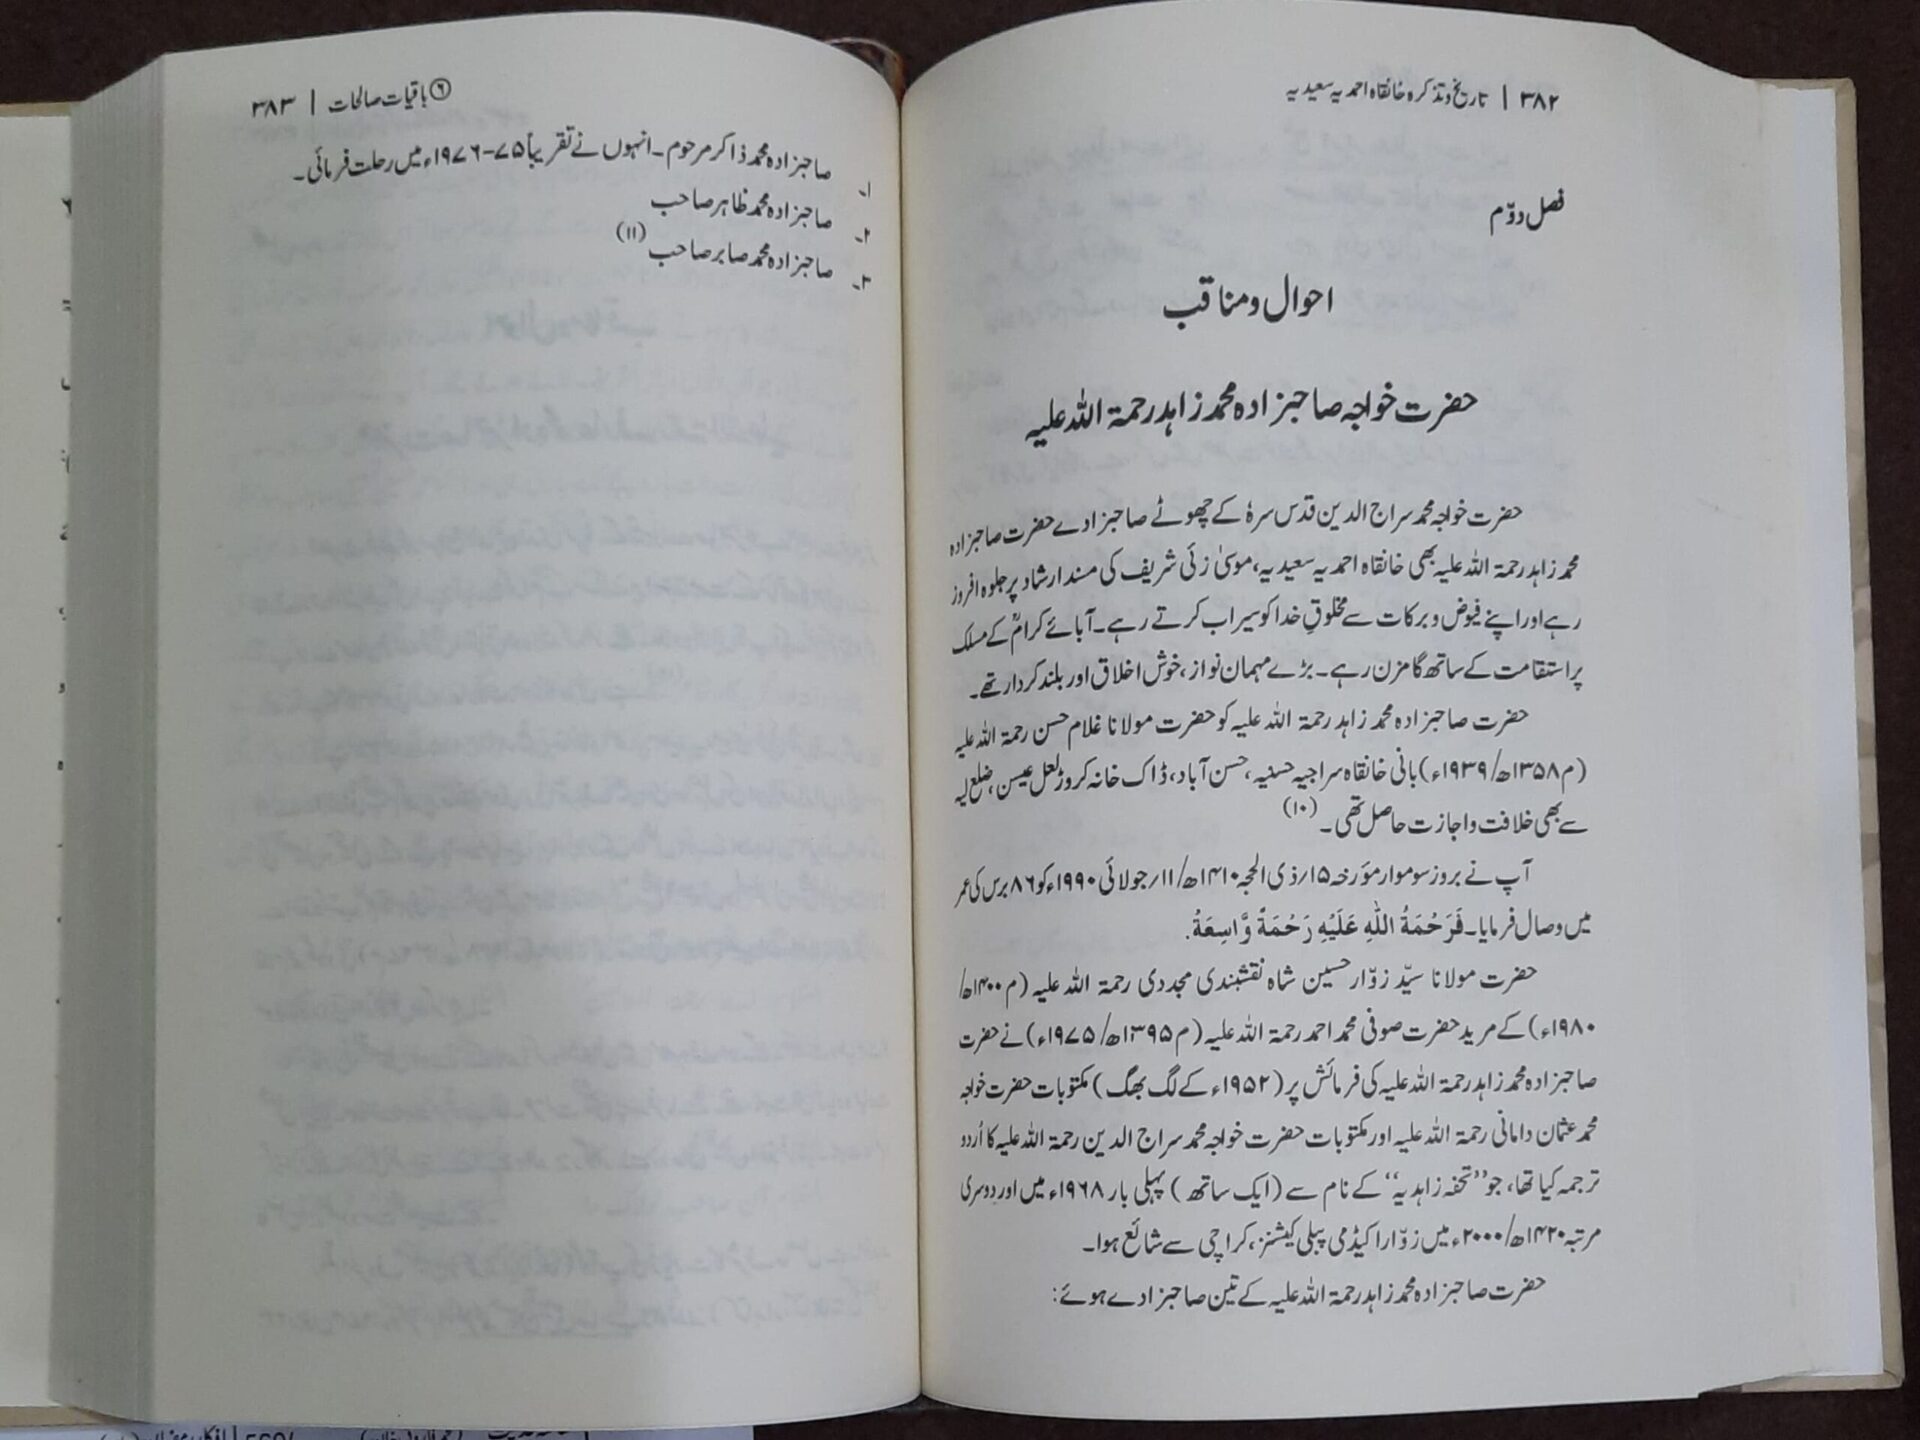 ۳۸۲ | تاریخ وتذکرہ خانقاہ احمدیہ سعیدیہ
فصل دوّم
احوال ومناقب
حضرت خواجہ صاحبزادہ محمد زاہد رحمۃ اللہ علیہ
حضرت خواجہ محمد سراج الدین قدس سرہٗ کے چھوٹے صاحبزادے حضرت صاحبزادہ
محمد زاہد رحمۃ اللہ علیہ بھی خانقاہ احمدیہ سعیدیہ، موسیٰ زئی شریف کی مسند ارشاد پر جلوہ افروز
رہے اور اپنے فیوض وبرکات سے مخلوقِ خدا کو سیراب کرتے رہے۔ آبائے کرامؒ کے مسلک
پر استقامت کے ساتھ گامزن رہے۔ بڑے مہمان نواز، خوش اخلاق اور بلند کردار تھے۔
حضرت صاحبزادہ محمد زاہد رحمۃ اللہ علیہ کو حضرت مولانا غلام حسن رحمۃ اللہ علیہ
(م ۱۳۵۸ھ/۱۹۳۹ء) بانی خانقاہ سراجیہ حسنیہ، حسن آباد، ڈاک خانہ کروڑ لعل عیسن، ضلع لیہ
سے بھی خلافت واجازت حاصل تھی۔(۱۰)
آپ نے بروز سوموار مؤرخہ ۱۵؍ذی الحجہ ۱۴۱۰ھ/۱۱؍جولائی ۱۹۹۰ء کو ۸۶ برس کی عمر
میں وصال فرمایا۔ فَرَحْمَةُ اللهِ عَلَيْهِ رَحْمَةً وَّاسِعَةً.
حضرت مولانا سیّد زوّار حسین شاہ نقشبندی مجددی رحمۃ اللہ علیہ (م ۱۴۰۰ھ/
۱۹۸۰ء) کے مرید حضرت صوفی محمد احمد رحمۃ اللہ علیہ (م ۱۳۹۵ھ/۱۹۷۵ء) نے حضرت
صاحبزادہ محمد زاہد رحمۃ اللہ علیہ کی فرمائش پر (۱۹۵۲ء کے لگ بھگ) مکتوبات حضرت خواجہ
محمد عثمان دامانی رحمۃ اللہ علیہ اور مکتوبات حضرت خواجہ محمد سراج الدین رحمۃ اللہ علیہ کا اُردو
ترجمہ کیا تھا، جو ”تحفہ زاہدیہ“ کے نام سے (ایک ساتھ) پہلی بار ۱۹۶۸ء میں اور دوسری
مرتبہ ۱۴۲۰ھ/۲۰۰۰ء میں زوّار اکیڈمی پبلی کیشنز، کراچی سے شائع ہوا۔
حضرت صاحبزادہ محمد زاہد رحمۃ اللہ علیہ کے تین صاحبزادے ہوئے:
⑥ باقیات صالحات | ۳۸۳
۱۔ صاحبزادہ محمد ذاکر مرحوم۔ انہوں نے تقریباً ۷۵-۱۹۷۶ء میں رحلت فرمائی۔
۲۔ صاحبزادہ محمد ظاہر صاحب
۳۔ صاحبزادہ محمد صابر صاحب(۱۱)